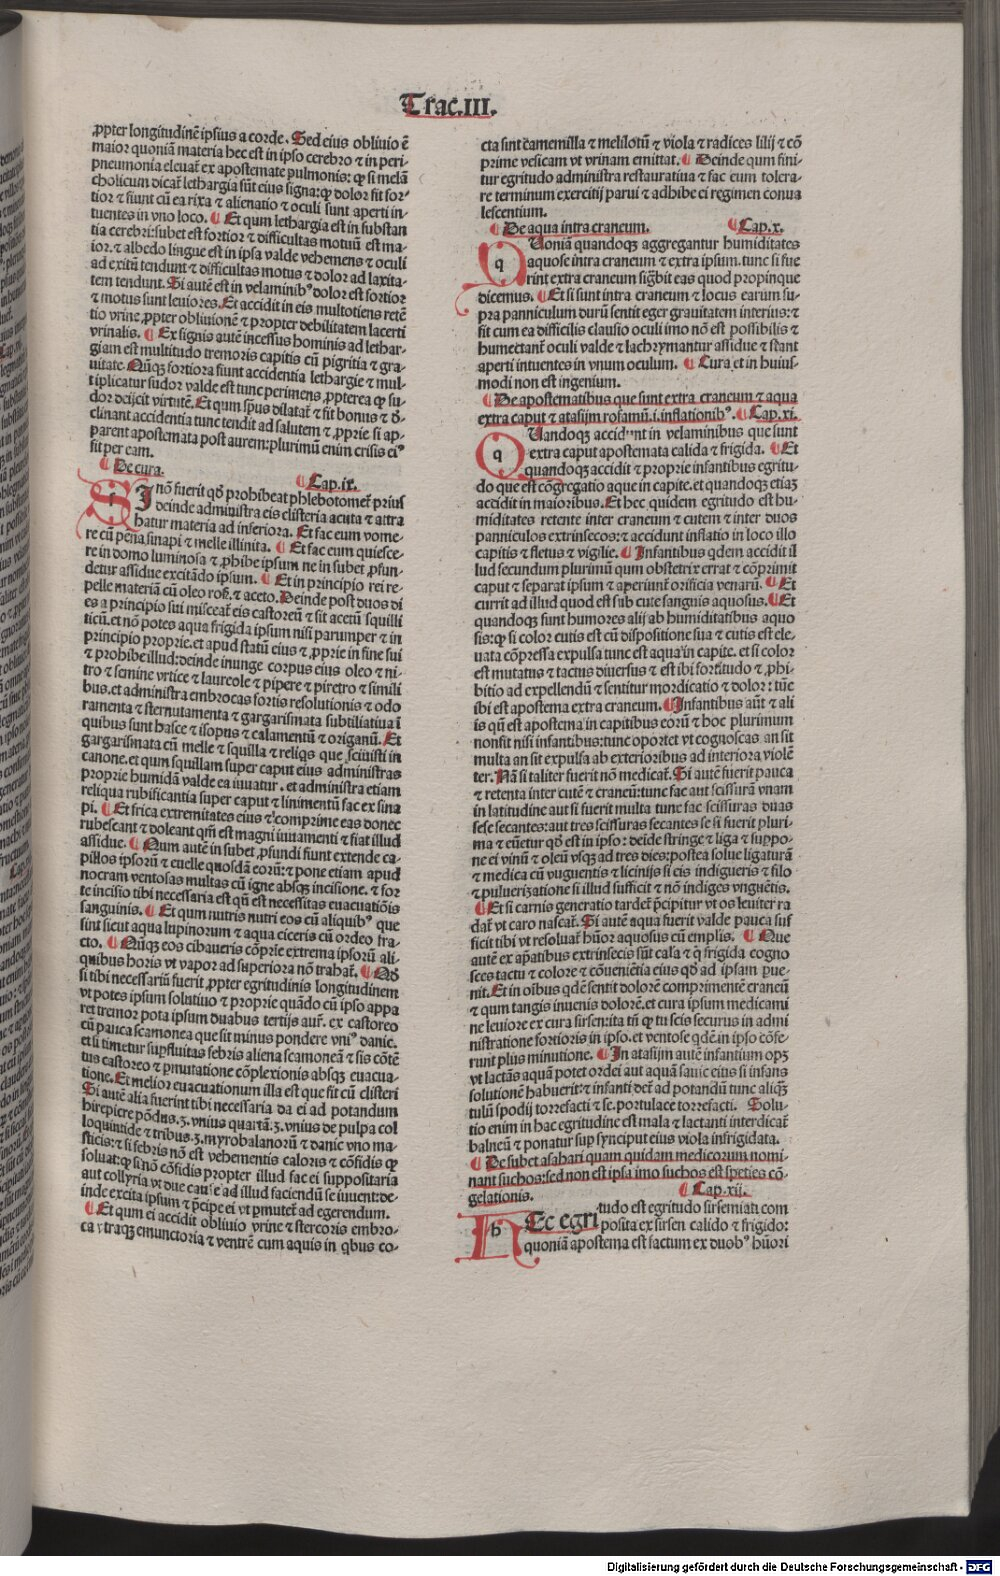 Trac.III.
ꝓpter longitudinē ipsius a corde. Sed eius obliuio ē
maior quoniā materia hec est in ipso cerebro ⁊ in peri-
pneumonia eleuat̄ ex apostemate pulmonis: ꝙ si melā
cholicum dicat̄ lethargia sūt eius signa: ꝙ dolor fit for-
tior ⁊ fiunt cū ea rixa ⁊ alienatio ⁊ oculi sunt aperti in-
tuentes in vno loco. ¶ Et qum lethargia est in substan
tia cerebri: subet est fortior ⁊ difficultas motuū est ma-
ior. ⁊ albedo lingue est in ipsa valde vehemens ⁊ oculi
ad exitū tendunt ⁊ difficultas motus ⁊ dolor ad laxita-
tem tendunt. Si autē est in velaminibꝰ dolor est fortior
⁊ motus sunt leuiores. Et accidit in eis multotiens retē
tio vrine ꝓpter obliuionē ⁊ propter debilitatem lacerti
vrinalis. ¶ Ex signis autē incessus hominis ad lethar-
giam est multitudo tremoris capitis cū pigritia ⁊ gra-
uitate. Nūqꝫ fortiora fiunt accidentia lethargie ⁊ mul-
tiplicatur sudor valde est tunc perimens ꝓpterea ꝙ su-
dor deijcit virtutē. Et qum spūs dilatat̄ ⁊ fit bonus ⁊ d̄-
clinant accidentia tunc tendit ad salutem ⁊ ꝓprie si ap-
parent apostemata post aurem: plurimū enim crisis eiꝰ
fit per eam.
¶ De cura. ¶ Cap.ix.
SI nō fuerit qđ prohibeat phlebotomet̄ prius
deinde administra eis clisteria acuta ⁊ attra
hatur materia ad inferiora. Et fac eum vome
re cū pena sinapi ⁊ melle illinita. ¶ Et fac eum quiesce-
re in domo luminosa ⁊ ꝓhibe ipsum ne in subet ꝓfun-
detur assidue excitādo ipsum. ¶ Et in principio rei re-
pelle materiā cū oleo roꝝ. ⁊ aceto. Deinde post duos di
es a principio sui misceat̄ eis castoreū ⁊ sit acetū squilli
ticū. et nō potes aqua frigida ipsum nisi parumper ⁊ in
principio proprie. et apud statū eius ⁊ ꝓprie in fine sui
⁊ prohibe illud: deinde inunge corpus eius oleo ⁊ ni-
tro ⁊ semine vrtice ⁊ laureole ⁊ pipere ⁊ piretro ⁊ simili
bus. et administra embrocas fortis resolutionis ⁊ odo
ramenta ⁊ sternutamenta ⁊ gargarismata subtiliatiua ī
quibus sunt hasce ⁊ isopus ⁊ calamentū ⁊ origanū. Et
gargarismata cū melle ⁊ squilla ⁊ reliqs que sciuisti in
canone. et qum squillam super caput eius administras
proprie humidā valde ea iuuatur. et administra etiam
reliqua rubificantia super caput ⁊ linimentū fac ex sina
pi. ¶ Et frica extremitates eius ⁊ comprime eas donec
rubescant ⁊ doleant qm̄ est magni iuuamenti ⁊ fiat illud
assidue. ¶ Num autē in subet ꝓfundi fiunt extende ca-
pillos ipsorū ⁊ euelle quosdā eorū: ⁊ pone etiam apud
nocram ventosas multas cū igne absqꝫ incisione. ⁊ for
te incisio tibi necessaria est qū est necessitas euacuatiōis
sanguinis. ¶ Et qum nutris nutri eos cū aliquibꝰ que
sint sicut aqua lupinorum ⁊ aqua ciceris cū ordeo fra-
cto. ¶ Nūqꝫ eos cibaueris cōprie extrema ipsorū ali-
quibus horis vt vapor ad superiora nō trahat̄. ¶ Qđ
si tibi necessariū fuerit ꝓpter egritudinis longitudinem
vt potes ipsum solutiuo ⁊ proprie quādo cū ipso appa
ret tremor pota ipsum duabus tertijs aur̄. ex castoreo
cū pauca scamonea que sit minus pondere vniꝰ danic.
et si timetur suꝑfluitas febris aliena scamoneā ⁊ sis cōtē
tus castoreo ⁊ ꝑmutatione cōplexionis absqꝫ euacua-
tione. Et melior euacuationum illa est que fit cū clisteri
Si autē alia fuerint tibi necessaria da ei ad potandum
hirepicre pōdus. ʒ. vnius quartā. ʒ. vnius de pulpa col
loquintide ⁊ tribus. ʒ. myrobalanorū ⁊ danic vno ma-
sticis: ⁊ si febris nō est vehementis caloris ⁊ cōfidis ꝙ
soluat: ꝙ si nō cōfidis propter illud fac ei suppositaria
aut collyria vt due cause ad illud faciendū se iuuent: de-
inde excita ipsum ⁊ p̄cipe ei vt ꝑmutet ad egerendum.
¶ Et qum ei accidit obliuio vrine ⁊ stercoris embro-
ca vtraqꝫ emunctoria ⁊ ventrē cum aquis in qbus co-
cta sint camemilla ⁊ melilotū ⁊ viola ⁊ radices lilij ⁊ cō
prime vesicam vt vrinam emittat. ¶ Deinde qum fini-
tur egritudo administra restauratiua ⁊ fac eum tolera-
re terminum exercitij parui ⁊ adhibe ei regimen conua
lescentium.
¶ De aqua intra craneum. ¶ Cap.x.
QUoniā quandoqꝫ aggregantur humiditates
aquose intra craneum ⁊ extra ipsum. tunc si fue
rint extra craneum sig̅bit eas quod propinque
dicemus. ¶ Et si sunt intra craneum ⁊ locus earum su-
pra panniculum durū sentit eger grauitatem interius: ⁊
fit cum ea difficilis clausio oculi imo nō est possibilis ⁊
humectant̄ oculi valde ⁊ lachrymantur assidue ⁊ stant
aperti intuentes in vnum oculum. ¶ Cura et in huius-
modi non est ingenium.
¶ De apostematibus que sunt extra craneum ⁊ aqua
extra caput ⁊ atasijm rosamū.i. inflationibꝰ. ¶ Cap.xi.
QUandoqꝫ accidunt in velaminibus que sunt
extra caput apostemata calida ⁊ frigida. ¶ Et
quandoqꝫ accidit ⁊ proprie infantibus egritu-
do que est cōgregatio aque in capite. et quandoqꝫ etiaꝫ
accidit in maioribus. Et hec quidem egritudo est hu-
miditates retente inter craneum ⁊ cutem ⁊ inter duos
panniculos extrinsecos: ⁊ accidunt inflatio in loco illo
capitis ⁊ fletus ⁊ vigilie. ¶ Infantibus qdem accidit il
lud secundum plurimū qum obstetrix errat ⁊ cōprimit
caput ⁊ separat ipsum ⁊ aperiunt̄ orificia venarū. ¶ Et
currit ad illud quod est sub cute sanguis aquosus. ¶ Et
quandoqꝫ sunt humores alij ab humiditatibus aquo
sis: ꝙ si color cutis est cū dispositione sua ⁊ cutis est ele
uata cōpressa expulsa tunc est aqua in capite. et si color
est mutatus ⁊ tactus diuersus ⁊ est ibi fortitudo ⁊ ꝓhi-
bitio ad expellendū ⁊ sentitur mordicatio ⁊ dolor: tūc
ibi est apostema extra craneum. ¶ Infantibus aūt ⁊ ali
is qū est apostema in capitibus eorū ⁊ hoc plurimum
non fit nisi infantibus: tunc oportet vt cognoscas an sit
multa an sit expulsa ab exterioribus ad interiora violē
ter. Nā si taliter fuerit nō medicat̄. Si autē fuerit pauca
⁊ retenta inter cutē ⁊ craneū: tunc fac aut scissurā vnam
in latitudine aut si fuerit multa tunc fac scissuras duas
sese secantes: aut tres scissuras secantes se si fuerit pluri-
ma ⁊ euetur qđ est in ipso: deīde stringe ⁊ liga ⁊ suppo-
ne ei vinū ⁊ oleū vsqꝫ ad tres dies: postea solue ligaturā
⁊ medica cū vnguentis ⁊ licinijs si eis indigueris ⁊ filo
⁊ puluerizatione si illud sufficit ⁊ nō indiges vnguētis.
¶ Et si carnis generatio tardet p̄cipitur vt os leuiter ra
dat̄ vt caro nascat̄. Si autē aqua fuerit valde pauca suf
ficit tibi vt resoluat̄ hūor aquosus cū emplis. ¶ Que
autē ex aꝑatibus extrinsecis sūt cala ⁊ q̄ frigida cogno
sces tactu ⁊ colore ⁊ cōueniētia eius qđ ad ipsam ꝑue-
nit. Et in oībus qdē sentit dolorē comprimentē craneū
⁊ qum tangis inuenis dolorē. et cura ipsum medicami
ne leuiore ex cura sirsen: ita tn̄ ꝙ tu scis securus in admi
nistratione fortioris in ipso. et ventose qdē in ipso cōfe-
runt plus minutione. ¶ In atasijm autē infantium opꝫ
vt lactās aquā potet ordei aut aquā sauic eius si infans
solutionē habuerit: ⁊ infanti det̄ ad potandū tunc aliqꝫ
tulū spodij torrefacti ⁊ se. portulace torrefacti. Solu-
tio enim in hac egritudine est mala ⁊ lactanti interdicat̄
balneū ⁊ ponatur suꝑ synciput eius viola infrigidata.
¶ De subet asahari quam quidam medicorum nomi-
nant suchos: sed non est ipsa imo suchos est species cō-
gelationis. ¶ Cap.xii.
HEc egritudo est egritudo sirsemiati com
posita ex sirsen calido ⁊ frigido:
quoniā apostema est factum ex duobꝰ hūori
Digitalisierung gefördert durch die Deutsche Forschungsgemeinschaft - DFG